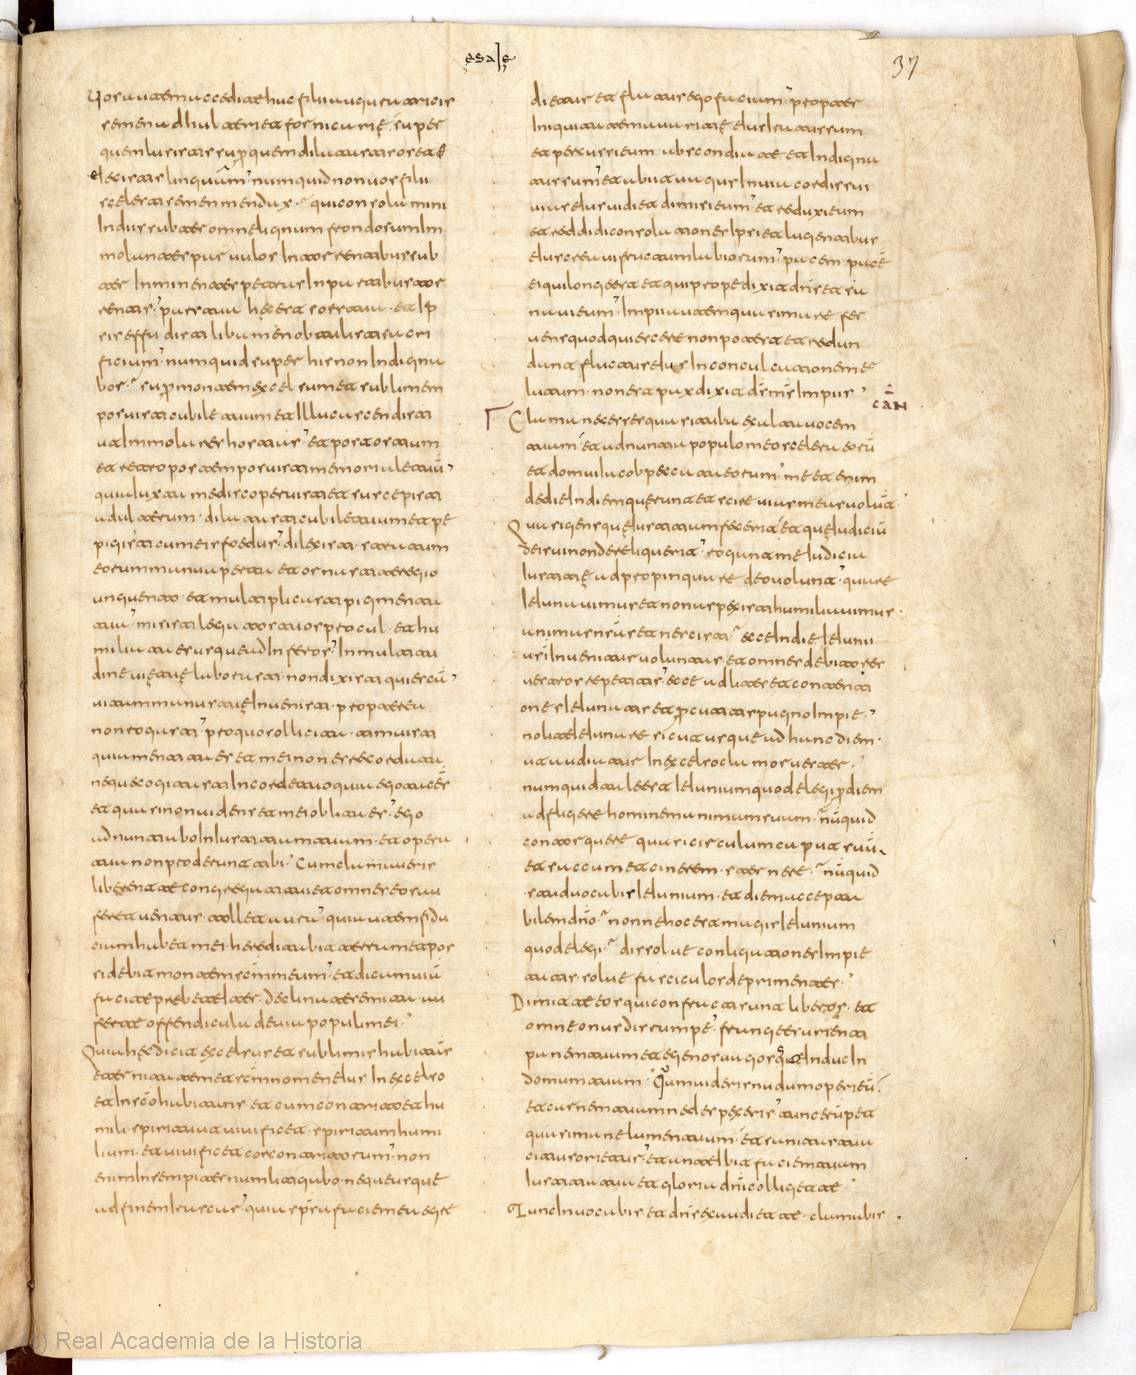 ęsaIę
37
Uos autem accedite huc filii auguratricis
semen adulteri et fornicarię. super
quem lusistis sup̄ quem dilatastis os et
eiecistis linguā? numquid non uos filii
scelerati semen mendax. qui consolamini
In diis subter omne lignum frondosum Im
molantes paruulos In torrentibus sub
ter Inminentes petras In partibus tor
rentis? pars tua hęc est sors tua. et Ip
sis effudisti libamen obtulisti sacri
ficium? numquid super his non Indigna
bor. sup̄ montem excelsum et sublimem
posuisti cubile tuum et Illuc ascendisti
ut Immolares hostias? et post ostium
et retro postem posuisti memoriale tuū
quia Iuxta me discoperuisti et suscepisti
adulterum. dilatasti cubile tuum et pe
pigisti cum eis foedus? dilexisti stratum
eorum manu aperta et ornasti te regio
unguento et multiplicasti pigmenta
tua? misisti legatos tuos procul. et hu
miliata es usque ad Inferos? In multitu
dine uię tuę laborasti. non dixisti quiescā
uitam manus tuę Inuenisti. propterea
non rogasti? pro quo sollicita timuisti
quia mentita es et mei non es recordata
neque cogitasti In corde tuo quia ego tacēs
et quasi non uidens et mei oblita es? ego
adnuntiabo Iustitiam tuam. et opera
tua non proderunt tibi. Cum clamaueris
liberent te congregati tui et omnes eos au
feret uentus tollet aura? qui autem fidu
ciam habet mei hereditabit terram et pos
sidebit montem scm̄ meum? et dicam uiā
facite prebete Iter. declinate semita. au
ferte offendicula de uia populi mei.
Quia hęc dicit excelsus et sublimis habitās
eternitatem et scm̄ nomen eius In excelso
et In sco̅ habitans et cum contrito et hu
mili spiritu ut uiuificet spiritum humi
lium. et uiuificet cor contritorum? non
enim In sempiternum litigabo. neque usque
ad finem Irascar? quia sps̄ a facie mea egre
dietur et flatus ego faciam? propter
Iniquitatem auaritię eius Iratus sum
et percussi eum. abscondi te et Indigna
tus sum? et abiit uagus In uia cordis sui
uias eius uidi et dimisi eum? et reduxi eum
et reddidi consolationes Ipsi et lugentibus
eius creaui fructum labiorum? pacem pacē
ei qui longe est et qui prope dixit dns̄ et sa
naui eum? Impii autem quasi mare fer
uens quod quiescere non potest et redun
dant fluctus eius In conculcationem et
lutum. non est pax dixit ds̄ ms̄ Impiis
CAN̄
Clama ne cesses quasi tuba exalta uocem
tuam et adnuntia populo meo scelera eorū
et domui Iacob peccata eorum? me etenim
de die In diem querunt et scire uias meas uolūt
Quasi gens quę Iustitiam fecerit et quę Iudiciū
dei sui non dereliquerit? rogant me Iudicia
Iustitię adpropinquare deo uolunt? quare
Ieiunauimus et non aspexisti humiliauimus
animas nrā̄s et nescisti? ecce In die Ieiunii
urī Inuenitur uoluntas et omnes debitores
uestros repetitis? ecce ad lites et contenti
ones Ieiunatis et percutitis pugno Impie
nolite Ieiunare sicut usque ad hunc diem.
ut audiatur In excelso clamor uester.
numquid tale est Ieiunium quod elegi p̄ diem
adfligere hominem animam suam. nūquid
contorquere quasi circulum caput suū
et saccum et cinerem sternere. nūquid
istud uocabis Ieiunium. et diem accepta
bilem dnō. nonne hoc est magis Ieiunium
quod elegi. dissolue conligationes Impie
tatis. solue fasciculos deprimentes.
Dimitte eos qui confracti sunt liberos. et
omne onus dirumpe? frange esurienti
panem tuum et egenos uagosque Induc In
domum tuam. Quum uideris nudum operi eū
et carnem tuam ne despexeris? tunc erūpet
quasi mane lumen tuum. et sanitas tua
citius orietur? et anteibit faciem tuam
Iustitia tua et gloria dnī colliget te
Tunc Inuocabis et dns̄ exaudiet te. clamabis.
© Real Academia de la Historia